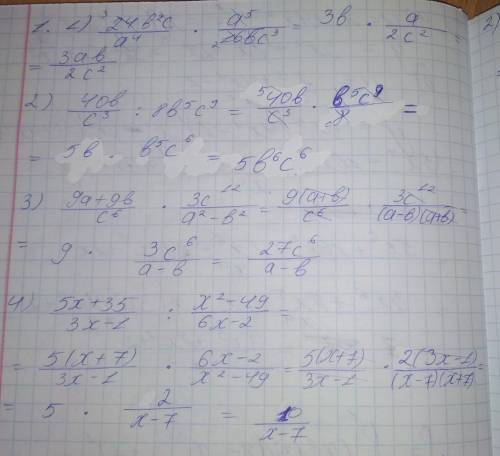 1. 1) ³24в²c/a⁴ · a⁵/₂16вc³ = 3в · a/2c² =
= 3aв/2c²
2) 40в/c³ : 8в⁵c⁹ = ⁵40в/c³ · в⁵c⁹/8 =
= 5в · в⁵c⁶ = 5в⁶c⁶
3) 9a+9в/c⁶ · 3c¹²/a²-в² = 9(a+в)/c⁶ · 3c¹²/(a-в)(a+в) =
= 9 · 3c⁶/a-в = 27c⁶/a-в
4) 5x+35/3x-1 : x²-49/6x-2 =
= 5(x+7)/3x-1 · 6x-2/x²-49 = 5(x+7)/3x-1 · 2(3x-1)/(x-7)(x+7) =
= 5 · 2/x-7 = 10/x-7
2)